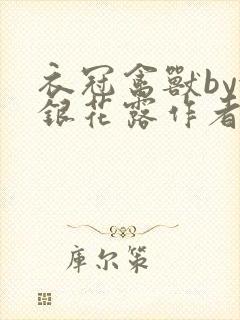 衣冠禽獸by
銀花露作者
库尔策